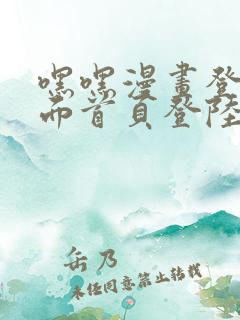 嘿嘿漫畫登
而首頁登陸
岳乃
未经同意禁止转载